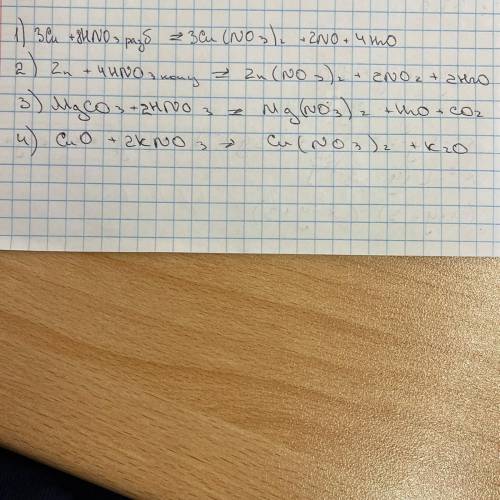 1) 3Cu + 8HNO3 разб = 3Cu(NO3)2 + 2NO + 4H2O
2) Zn + 4HNO3 конц = Zn(NO3)2 + 2NO2 + 2H2O
3) MgCO3 + 2HNO3 = Mg(NO3)2 + H2O + CO2
4) CuO + 2KNO3 → Cu(NO3)2 + K2O